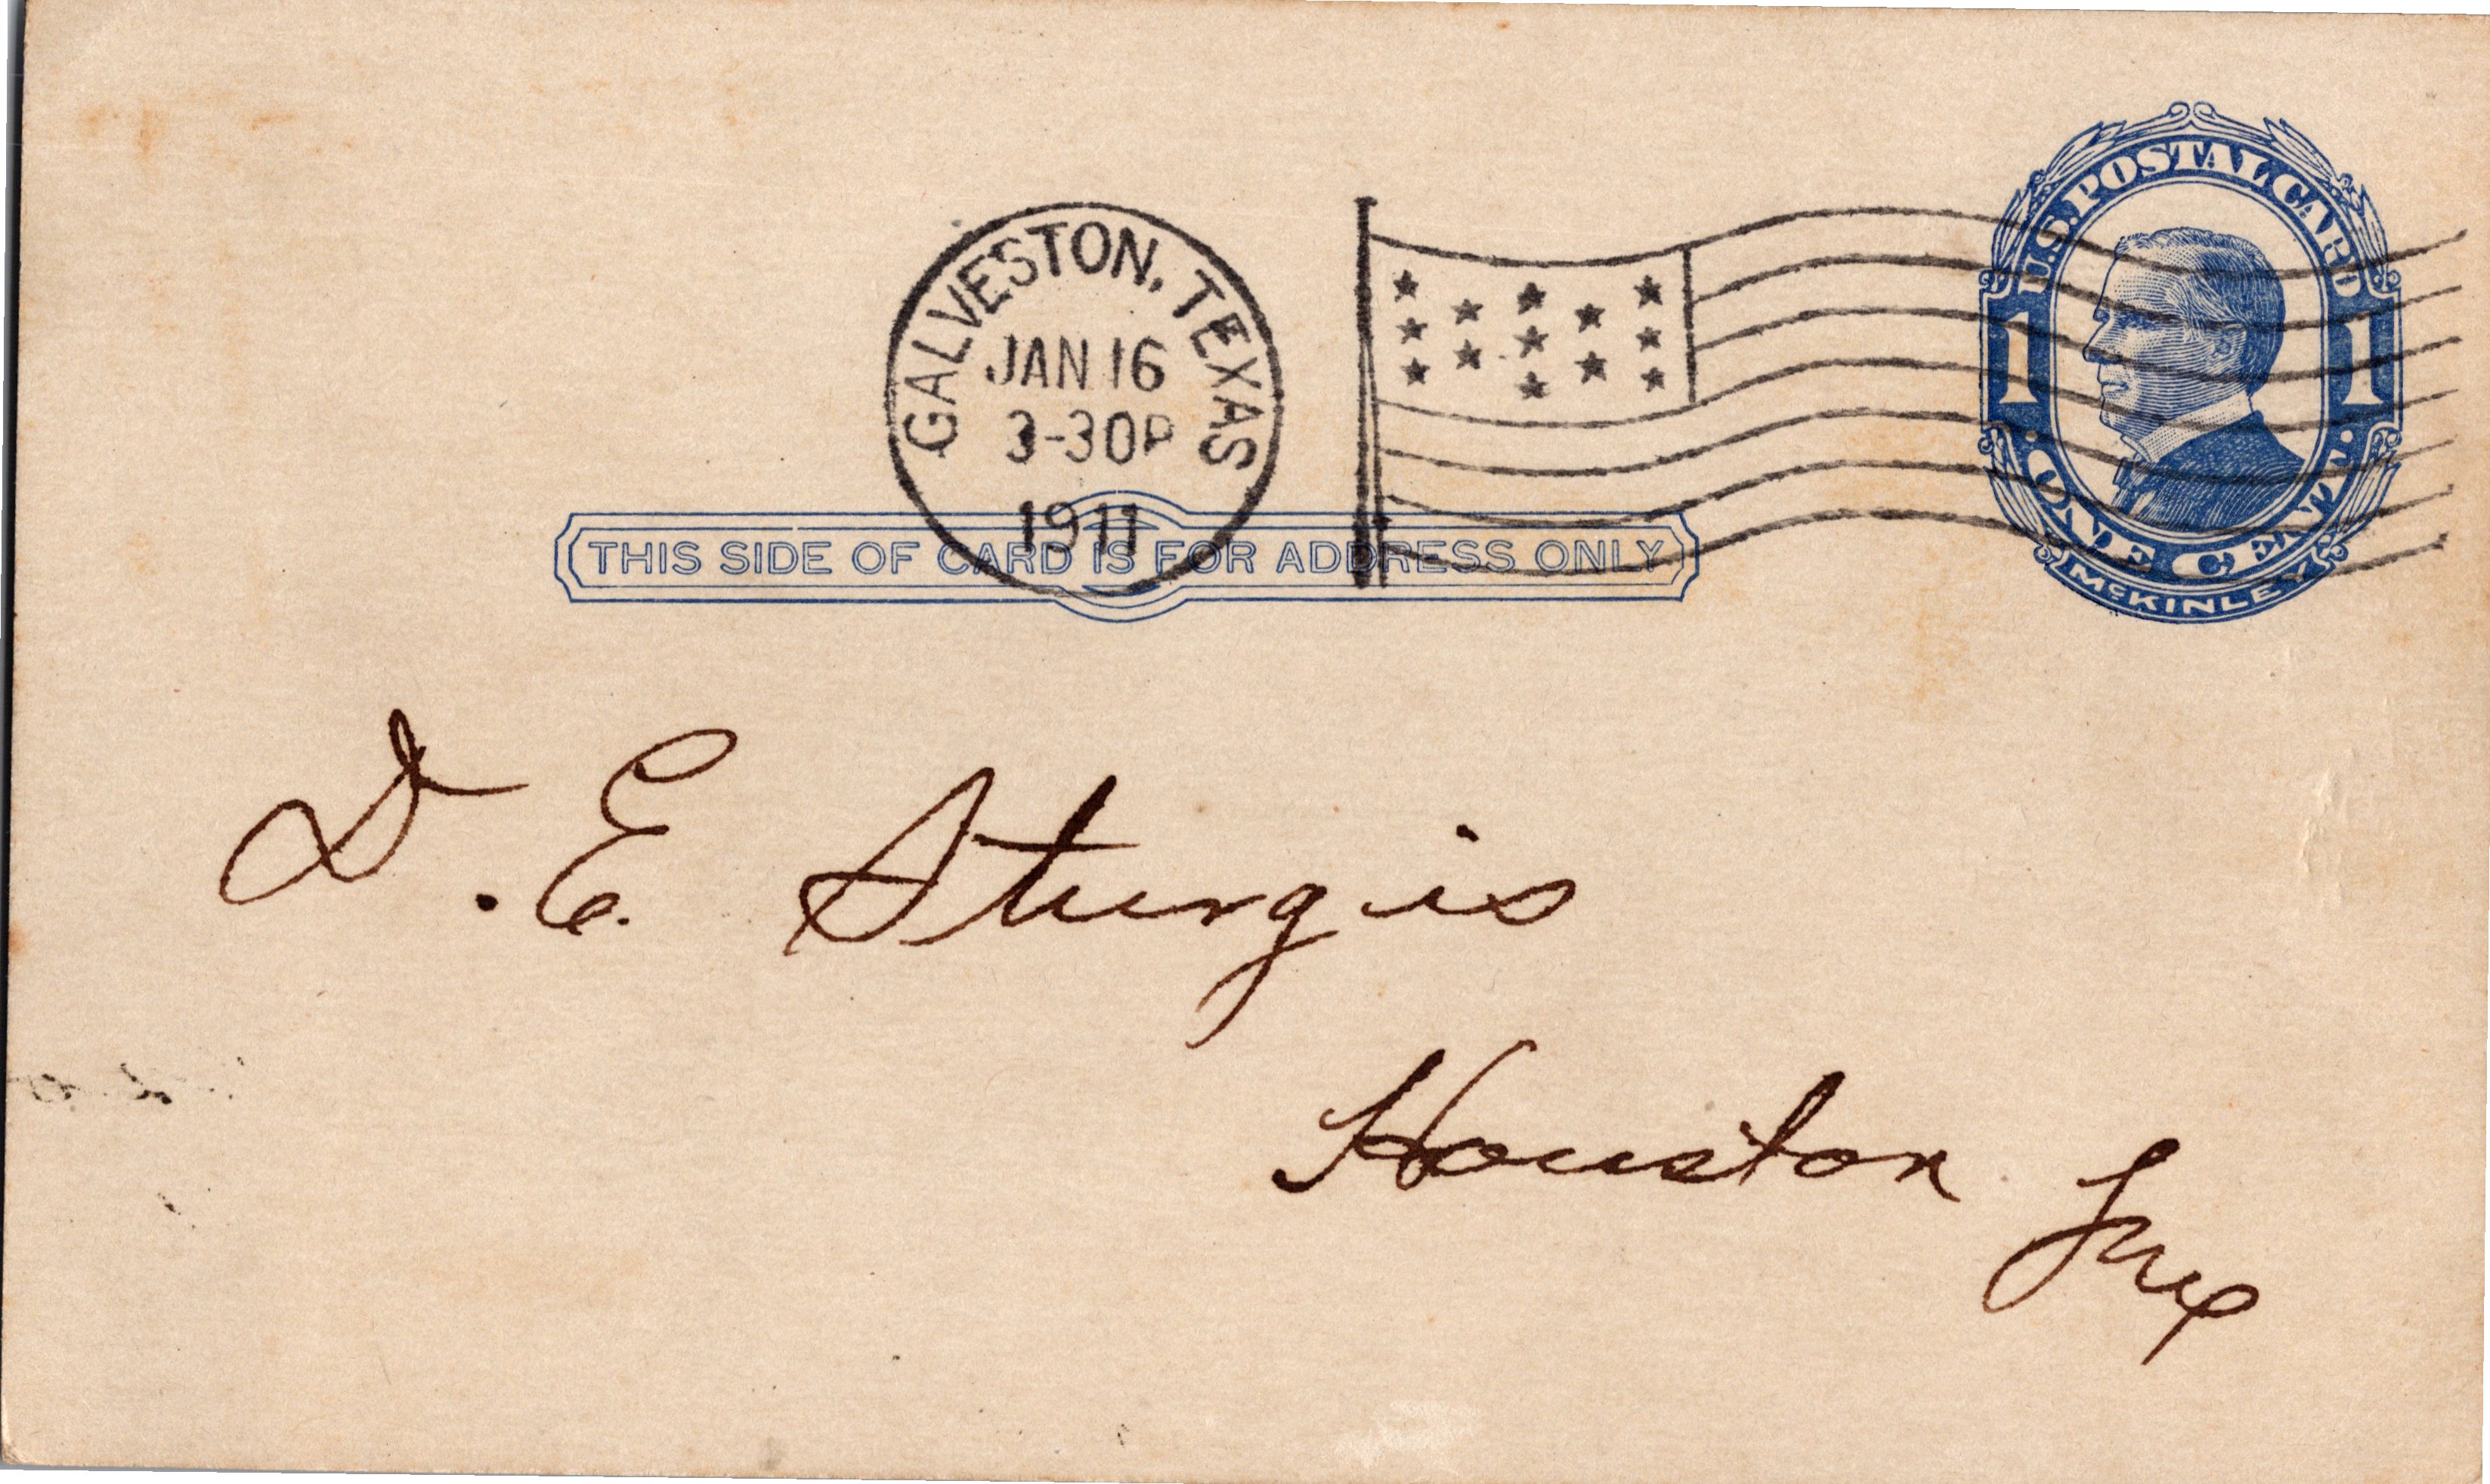 U.S. POSTAL CARD
1 1
ONE CENT
McKINLEY
GALVESTON, TEXAS
JAN 16
3-30P
1911
THIS SIDE OF CARD IS FOR ADDRESS ONLY
D. E. Sturgis
Houston Tex